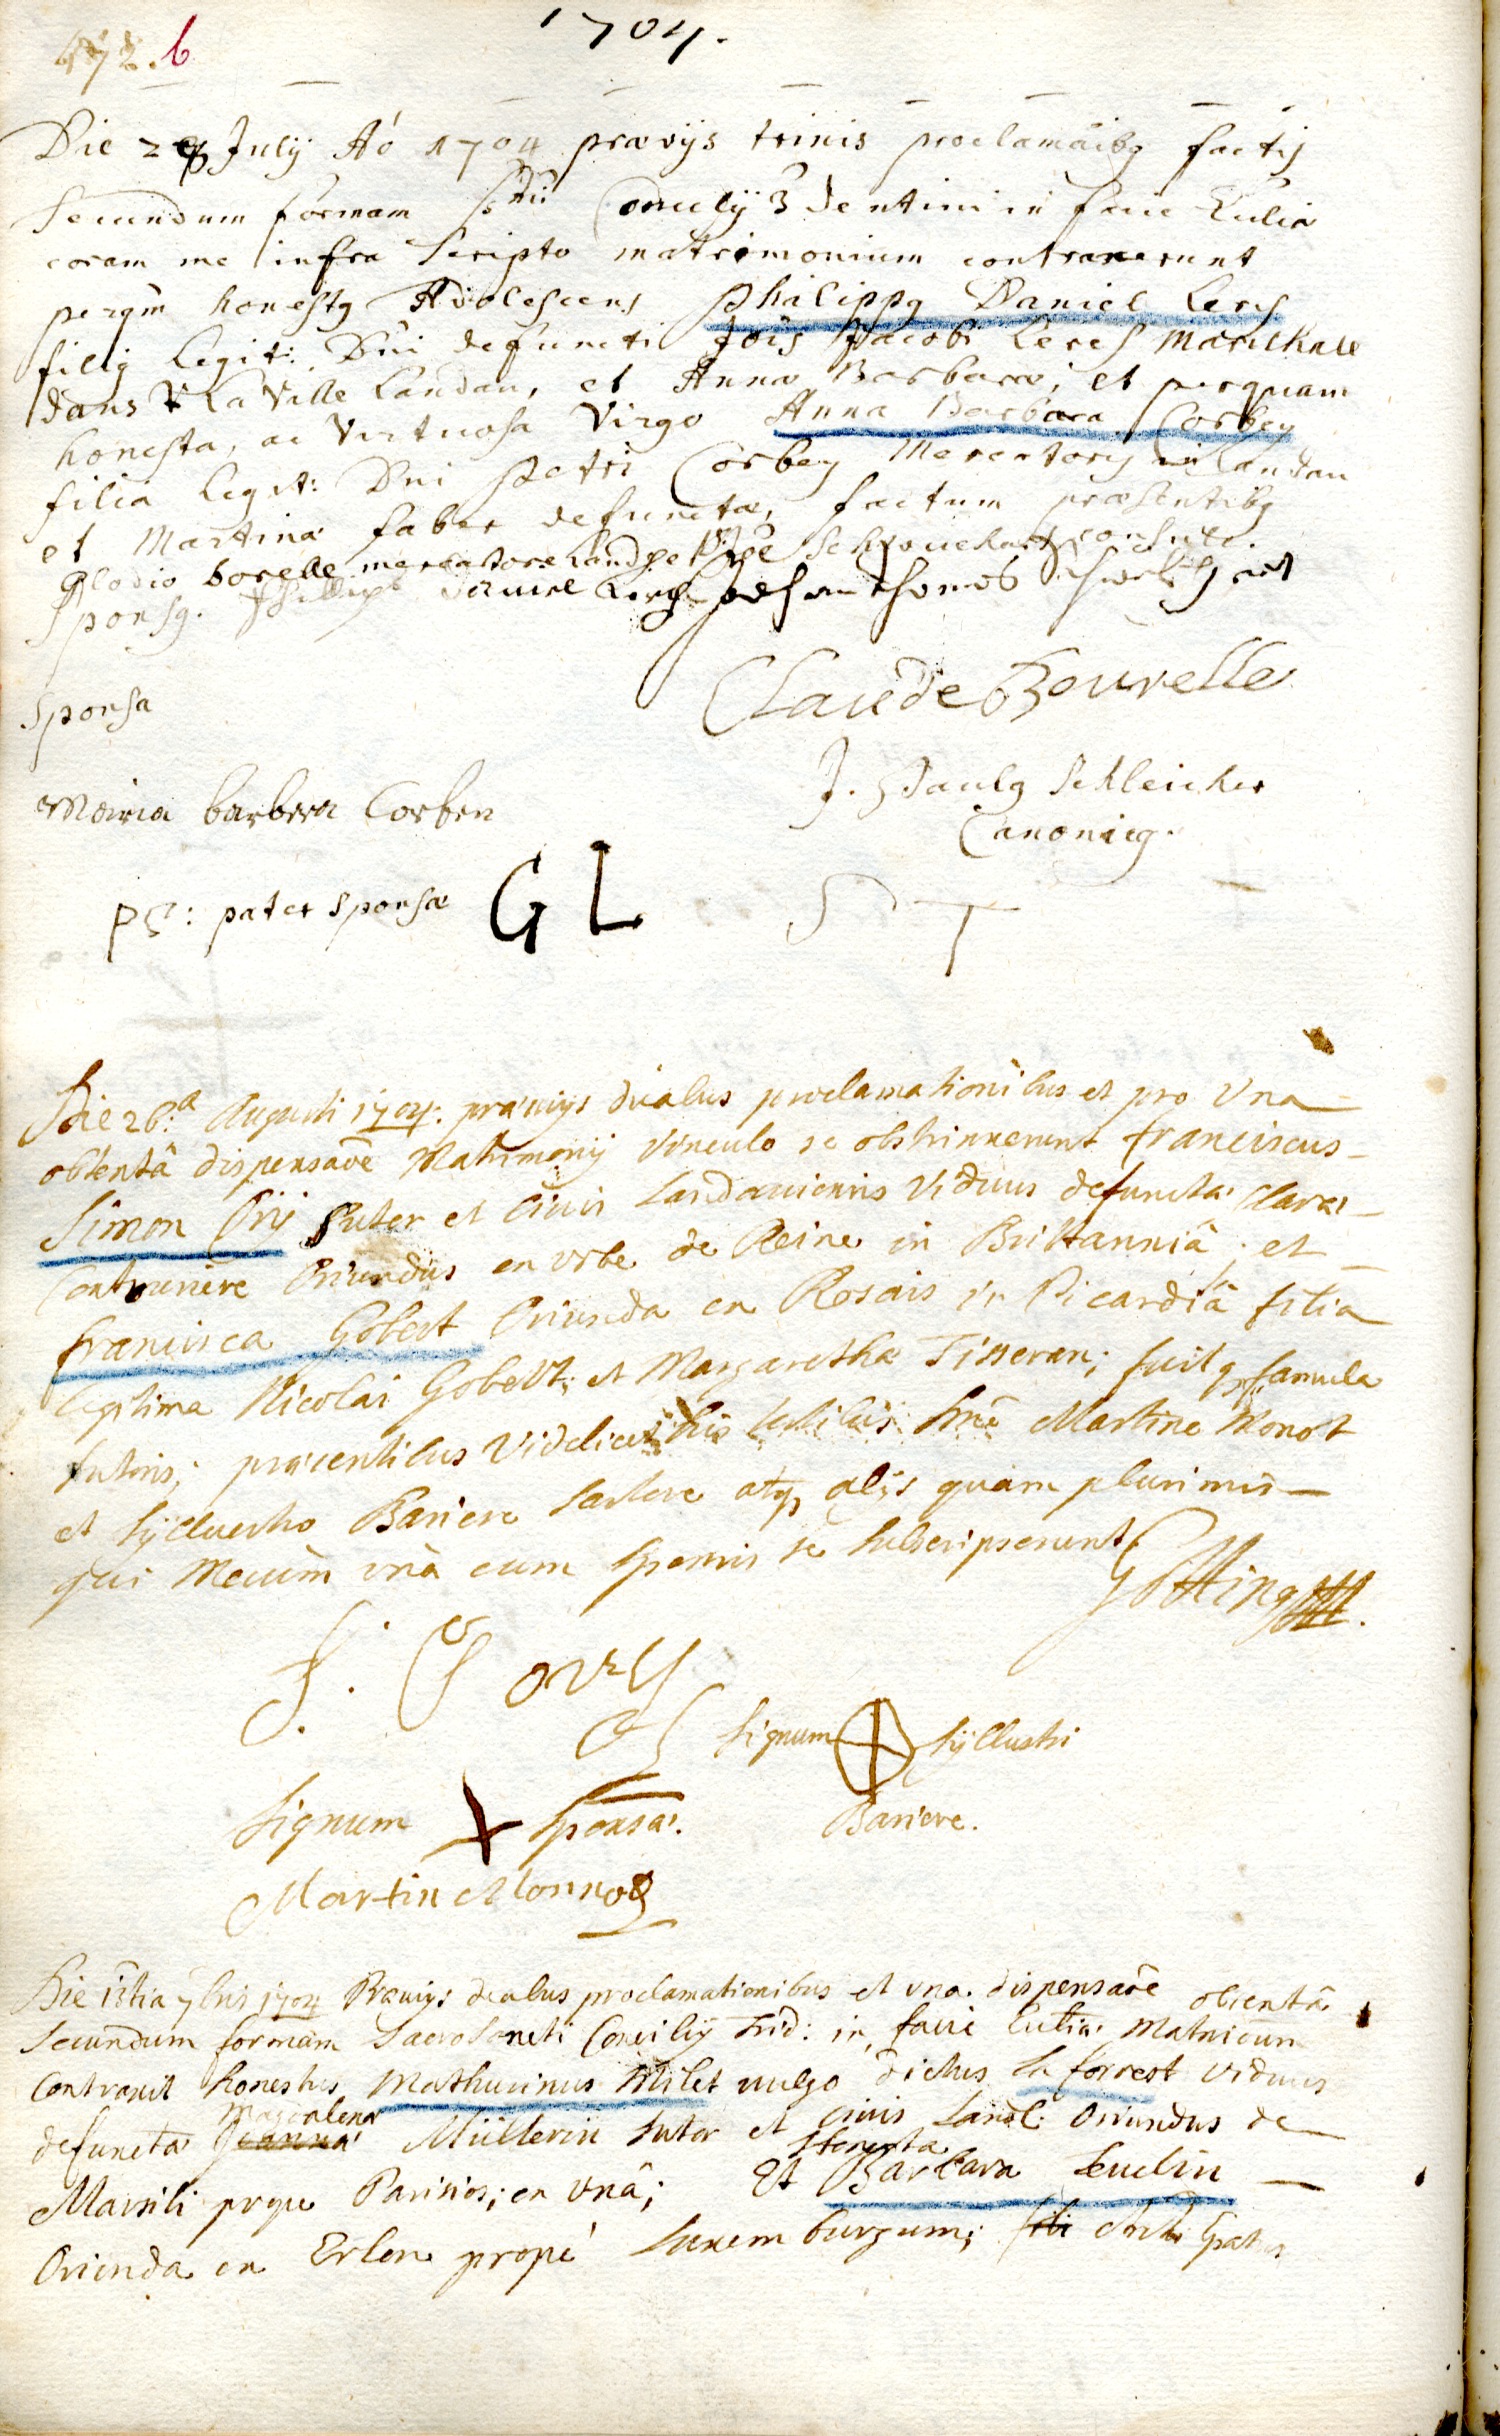 1704.
472.b
Die July Aó 1704 praevijs trinis proclamãibq factis
secundum formam Concilij Tridentini in facie Ecclia
coram me infra scripto matrimonium contraxerunt
perqm honestq Adolescens Philippq Daniel Lers
filiq legit: Dni defuncti Jois Jacobi Leres Marechale
dans La Ville Landau, et Anna Barbara; et perquam
honesta, ac Virtuosa Virgo Anna Barbara Corbey
filia legit: Dni Petri Corbey Mercatoris in Landau
et Martina faber defuncta, factum praesentibq
Glodio borelle mercatore
sponsq. Phillipe Daniel Lers
Claude Bourelle
Sponsa
J. Paulq Schleicher
Maria barbera Corben
Canonicq.
PS: pater sponsae G L
S T
Die 26.a Augusti 1704. praevijs duabus proclamationibus et pro Vna
obtentâ dispensaõe Matrimonij Vinculo se obstrinxerunt franciscus
Simon Orij Suter et Civis Landaviensis Viduus defunctae Clarae
Oriundus ex vrbe de Reine in Brittanniâ; et
francisca Gobert Oriunda ex Rosais in Picardiâ filia
legitima Nicolai Gobert; et Margaretha Tisseran; fuitq famula
sutoris; praesentibus Videlicet his testibus Martine Monot
et Syllvestro Bariere sartore atq alijs quam plurimis
qui Mecum vnà cum sponsis se subscripserunt
Götting
f. Oory
Signum Syllvestri
Signum Sponsae.
Bariere.
Martin Monnot
Die 13tia 7bris 1704 Praevijs duabus proclamationibus et vna dispensaõe obtentâ
Secundum formam Sacrosancti Concilij Trid: in facie Ecclia Matrimonium
Contraxit honestus Mathurinus Milet vulgo dictus la forrest Viduus
Magdalena
defuncta Jeanna Müllerin sutor et civis Land: Oriundus de
honesta
Marsili prope Parisios; ex vnâ; Et Barbara Leuelin
Oriunda ex Erlon propè Luxemburgum;